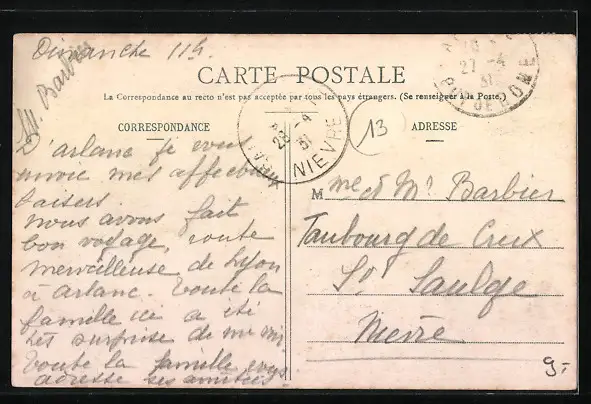 Dimanche 11h
M. Barbier
CARTE POSTALE
La Correspondance au recto n'est pas acceptée par tous les pays étrangers. (Se renseigner à la Poste.)
CORRESPONDANCE
ADRESSE
D'arlanc je vous
envoie mes affectueux
baisers.
nous avons fait
bon voyage, route
merveilleuse de Lyon
à arlanc. Toute la
famille a été
très surprise de me
Toute la famille vous
adresse ses amitiés.
Mme et Mr Barbier
Faubourg de Creux
St Saulge
Nièvre
13
9.-
27 -4
31
PUY DE DOME
28 -4
31
NIEVRE